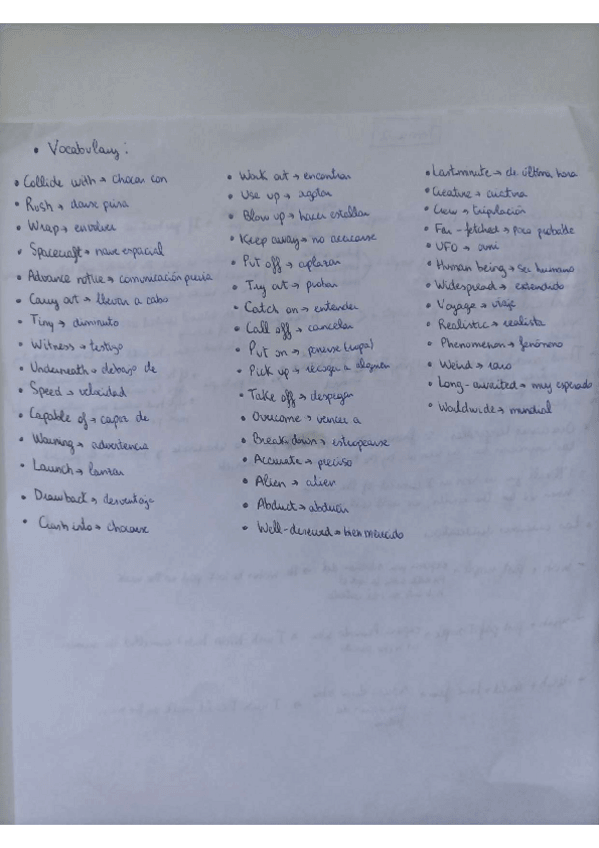 • Vocabulary:
• Collide with → chocar con
• Rush → darse prisa
• Wrap → envolver
• Spacecraft → nave espacial
• Advance notice → comunicación previa
• Carry out → llevar a cabo
• Tiny → diminuto
• Witness → testigo
• Underneath → debajo de
• Speed → velocidad
• Capable of → capaz de
• Warning → advertencia
• Launch → lanzar
• Drawback → desventaja
• Crash into → chocarse
• Work out → encontrar
• Use up → agotar
• Blow up → hacer estallar
• Keep away → no acercarse
• Put off → aplazar
• Try out → probar
• Catch on → entender
• Call off → cancelar
• Put on → ponerse (ropa)
• Pick up → recoger a alguien
• Take off → despegar
• Overcome → vencer a
• Break down → estropearse
• Accurate → preciso
• Alien → alien
• Abduct → abducir
• Well-deserved → bien merecido
• Last-minute → de última hora
• Creature → criatura
• Crew → tripulación
• Far-fetched → poco probable
• UFO → ovni
• Human being → ser humano
• Widespread → extendido
• Voyage → viaje
• Realistic → realista
• Phenomenon → fenómeno
• Weird → raro
• Long-awaited → muy esperado
• Worldwide → mundial